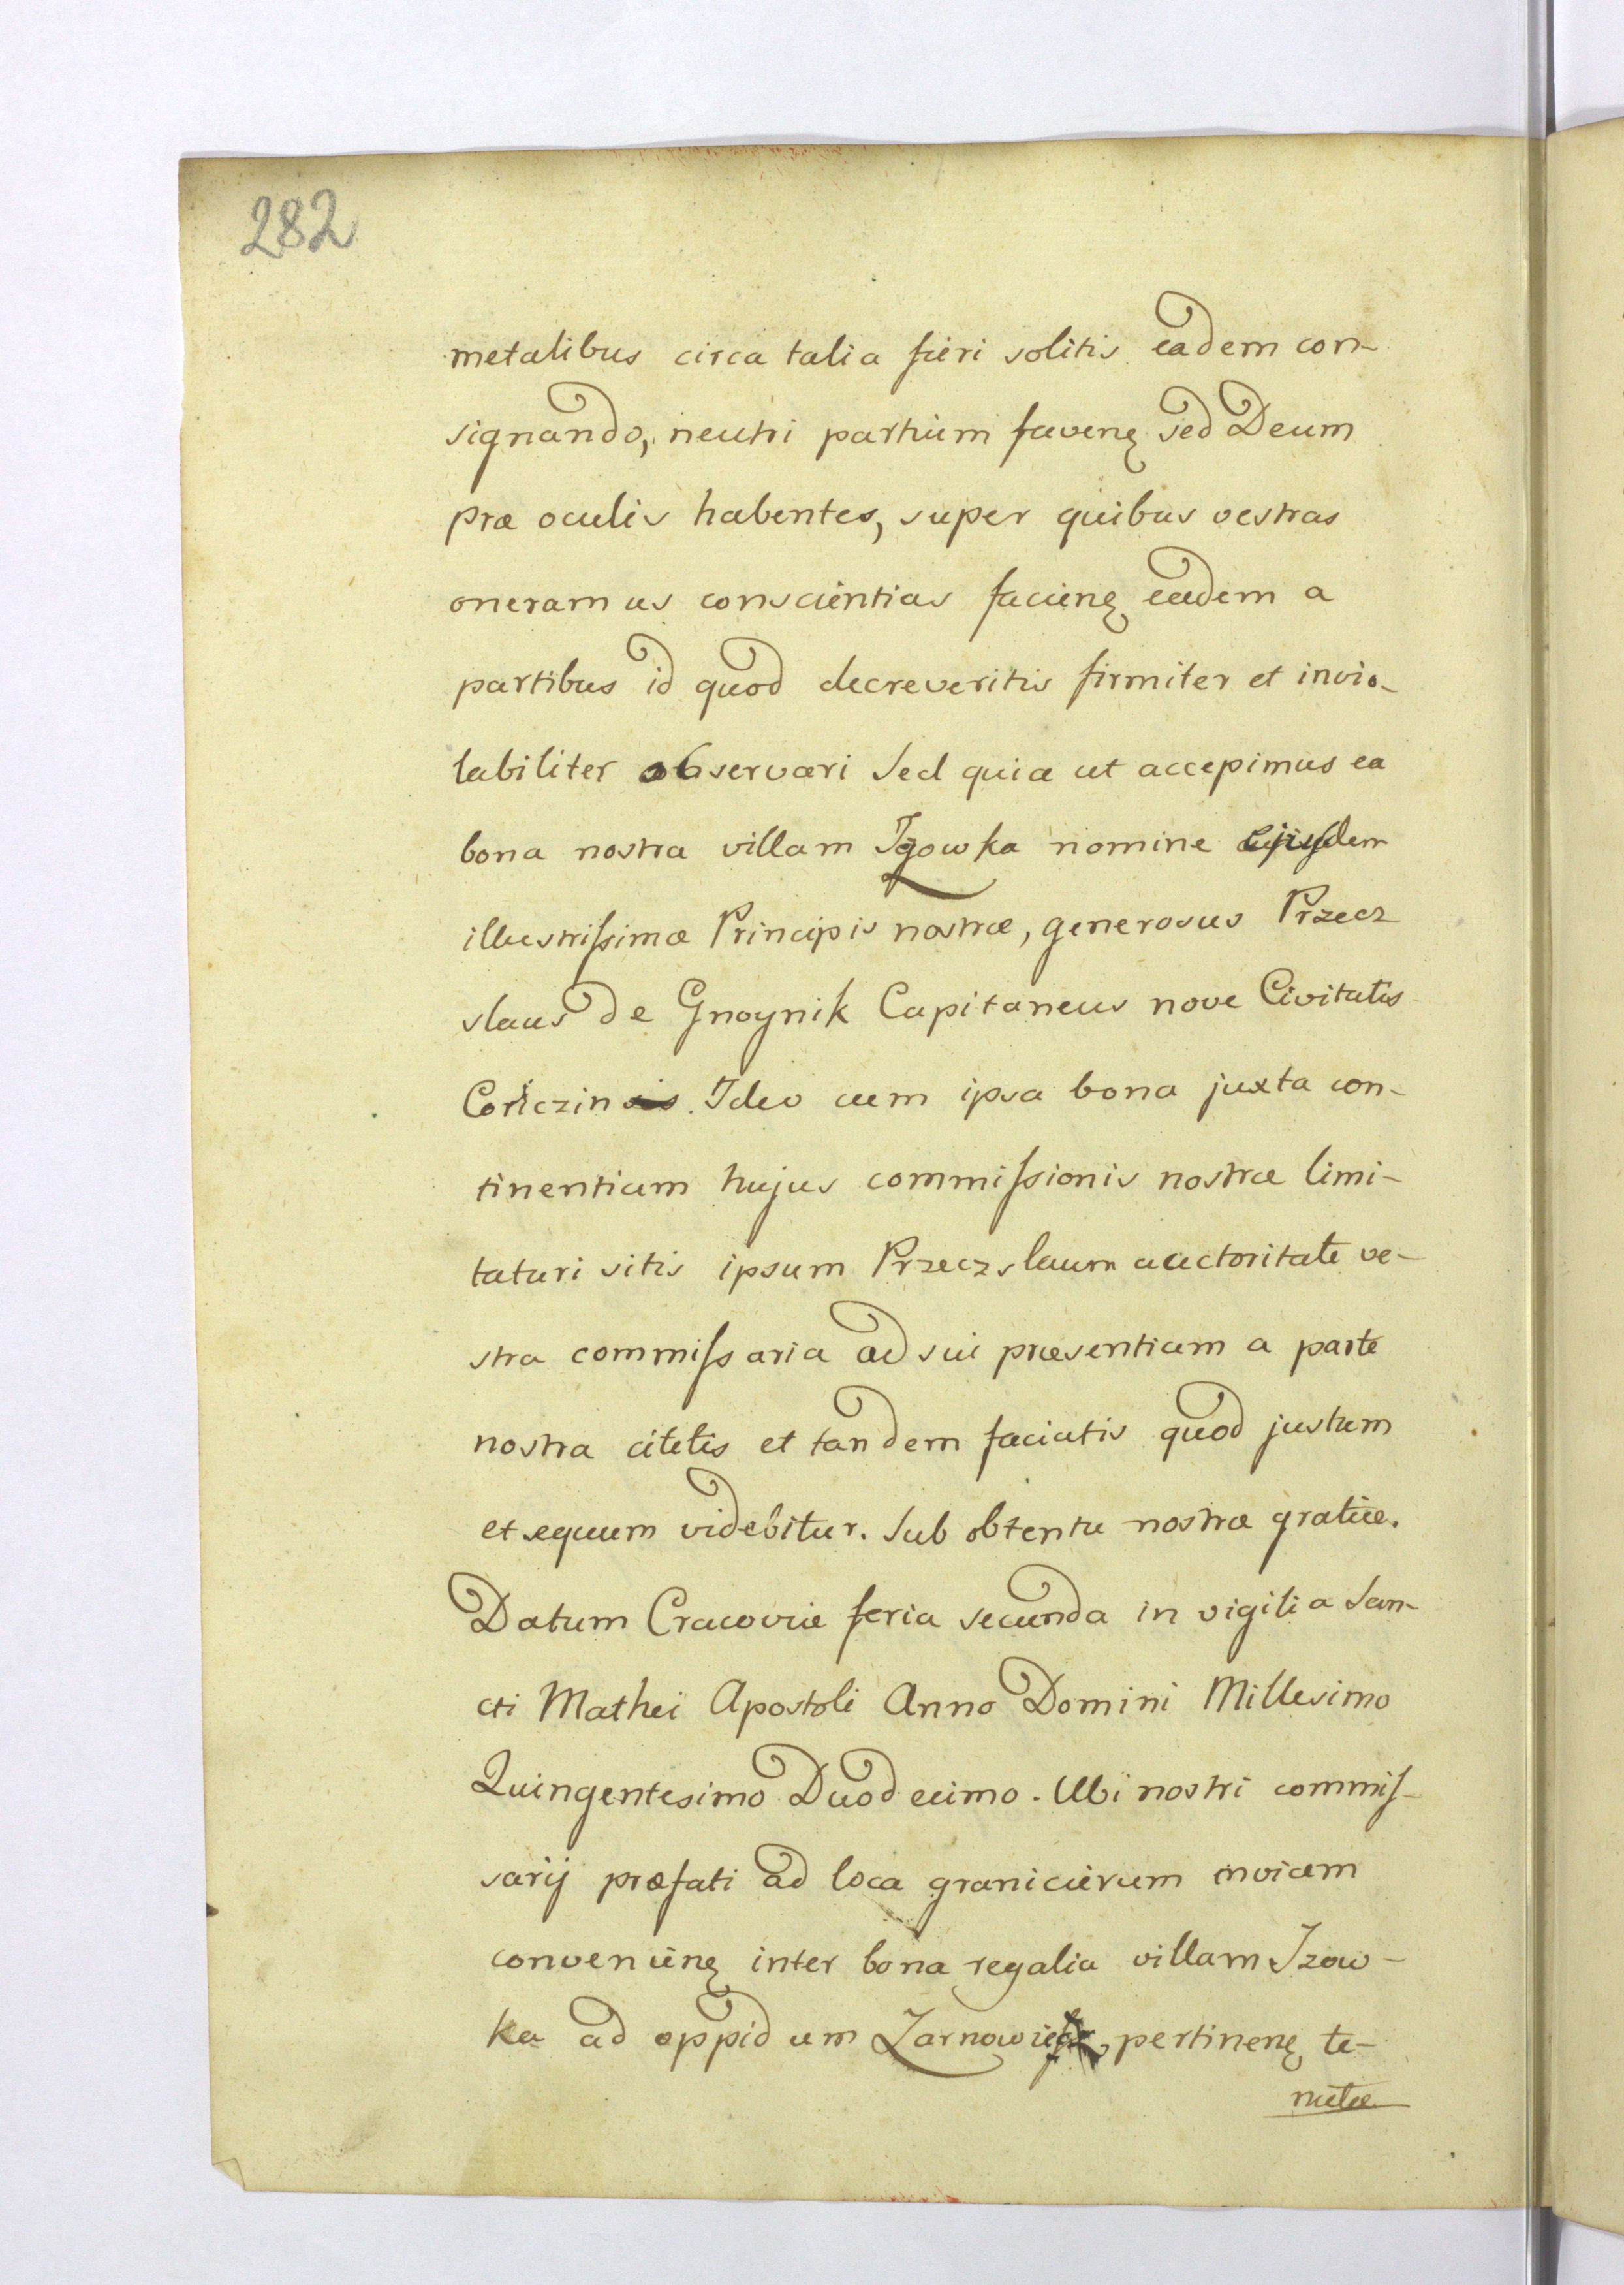 282
metalibus circa talia fieri solitis eadem con-
signando, neutri partium favenę sed Deum
præ oculis habentes, super quibus vestras
oneramus conscientias facienę eadem a
partibus id quod decreveritis firmiter et invio-
labiliter observari sed quia ut accepimus ea
bona nostra villam Izowka nomine ejusdem
illustrissimæ Principis nostræ, generosus Przecz
slaus de Gnoynik Capitaneus nove Civitatis
Corczin. Ideo cum ipsa bona juxta con-
tinentiam hujus commissionis nostræ limi-
taturi sitis ipsum Przeczslaum auctoritate ve-
stra commissaria ad sui præsentiam a parte
nostra citetis et tandem faciatis quod justum
et equum videbitur. Sub obtentu nostræ gratiæ.
Datum Cracoviæ feria secunda in vigilia San-
cti Mathei Apostoli Anno Domini Millesimo
Quingentesimo Duodecimo. Ubi nostri commis-
sarij præfati ad loca granicierum invicem
convenienę inter bona regalia villam Izow-
ka ad oppidum pertinenę te-
nutæ